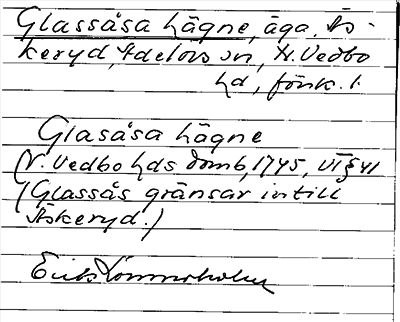 Glassåsa hägne, äga, Äs-
keryd, Adelövs sn, N. Vedbo
hd, Jönk. l.
Glasåsa hägne
N. Vedbo hds domb, 1745, VI § 41
(Glassås gränsar intill
Äskeryd.)
Erik